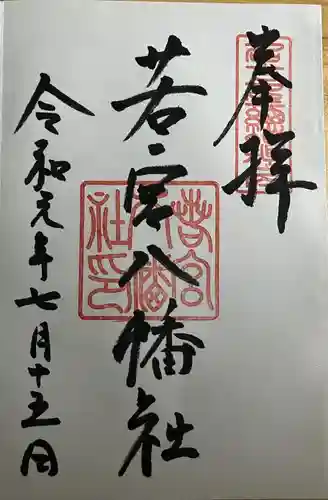 奉拝
若宮八幡社
若宮八幡社印
令和元年七月十五日